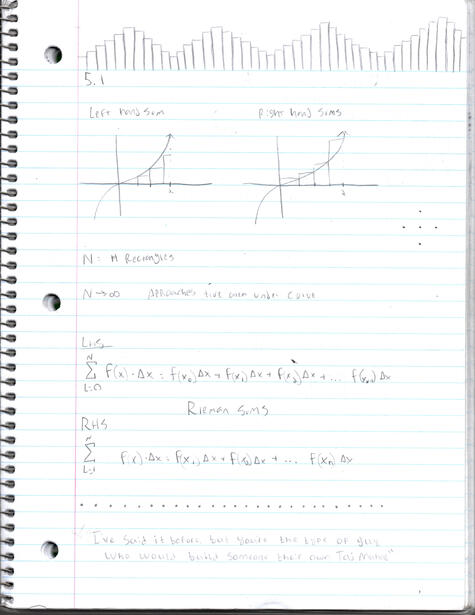 5.1
Left hand sum Right hand sums
2 2
N = # Rectangles
N → ∞ Approaches true area under curve
LHS
N
∑ f(x)·Δx = f(x₀)Δx + f(x₁)Δx + f(x₂)Δx + ... f(xₙ₋₁)Δx
i=0
Rieman sums
RHS
N
∑ f(x)·Δx = f(x₁)Δx + f(x₂)Δx + ... f(xₙ)Δx
i=1
"I've said it before, but you're the type of guy
who would build someone their own Taj Mahal"